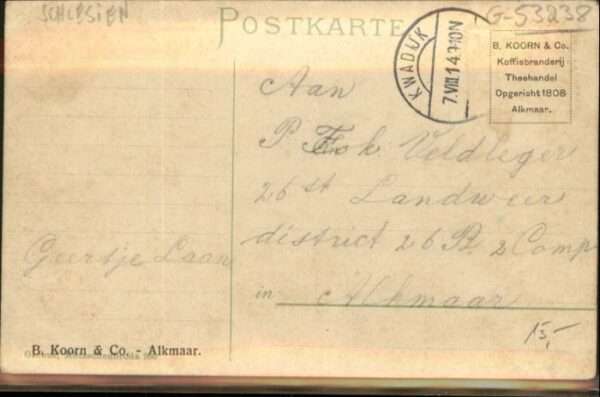 SCHLESIEN
POSTKARTE
G-53238
KWADIJK
7.VIII.14.7-10N
B. KOORN & Co.
Koffiebranderij
Theehandel
Opgericht 1808
Alkmaar.
Aan
P. Kok Veldleger
26st Landweer
district 26 B. 2 Comp
in Alkmaar
Geertje Laan
15,-
B. Koorn & Co. - Alkmaar.